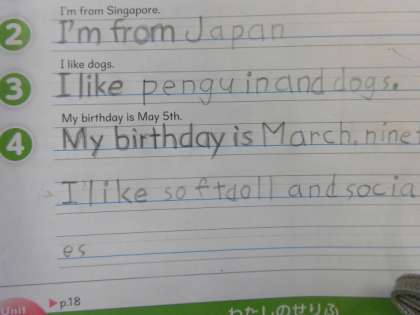 I'm from Singapore.
2 I'm from Japan
I like dogs.
3 I like penguin and dogs.
My birthday is May 5th.
4 My birthday is March. nine
I'like softdoll and socia
es
Unit
▶p.18
わたしのせりふ